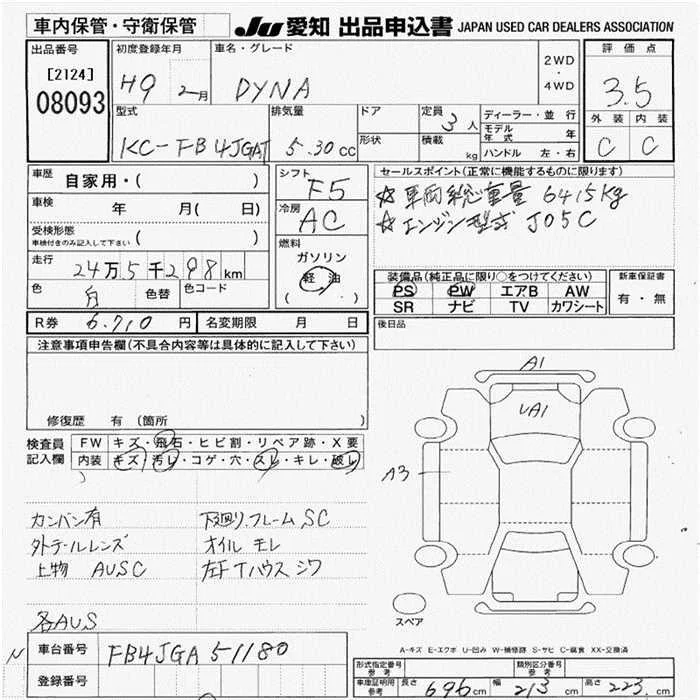 車内保管・守衛保管
JU 愛知 出品申込書 JAPAN USED CAR DEALERS ASSOCIATION
出品番号
[2124]
08093
初度登録年月
H9 2月
車名・グレード
DYNA
2WD
・
4WD
評価点
3.5
外装 内装
C C
型式
KC-FB4JGAT
排気量
5.30cc
ドア
形状
定員
3人
積載
kg
ディーラー・並行
モデル年式 年
ハンドル 左・右
車歴
自家用・( )
車検
年 月( 日)
受検形態
車検付きのみ記入して下さい ( )
走行
24万5千298km
色
白
色替
色コード
シフト
F5
冷房
AC
燃料
ガソリン
軽油
( )
セールスポイント(正常に機能するものに限ります)
☆車両総重量 6415kg
☆エンジン型式 J05C
装備品(純正品に限り○をつけてください)
PS PW エアB AW
SR ナビ TV カワシート
新車保証書
有・無
R券 6.710円
名変期限 月 日
後日品
注意事項申告欄(不具合内容等は具体的に記入して下さい)
修復歴 有 (箇所 )
検査員記入欄
FW キズ・飛石・ヒビ割・リペア跡・X要
内装 キズ・汚レ・コゲ・穴・スレ・キレ・破レ
カンバン有
外テールレンズ
上物 AUSC
各AUS
下廻り.フレームSC
オイルモレ
左FTハウスシワ
A1
UA1
A3
スペア
A-キズ E-エクボ U-凹み W-補修跡 S-サビ C-腐食 XX-交換済
車台番号
FB4JGA 51180
登録番号
形式指定番号
参考
類別区分番号
参考
車庫証明用
参考
長さ 696cm 幅 213cm 高さ 223cm